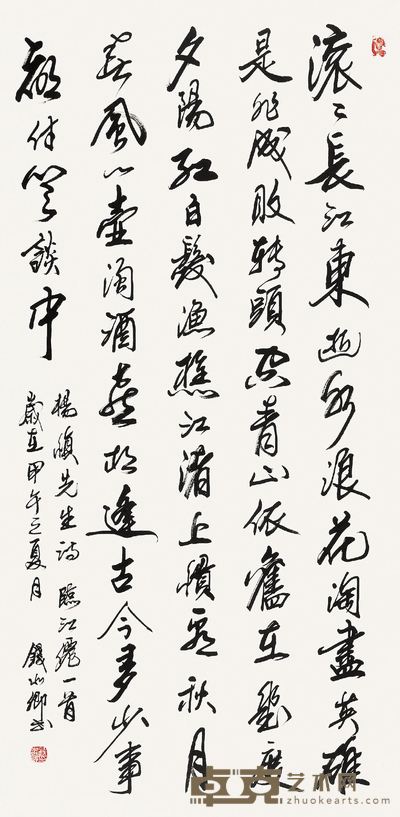 滚〻長江東逝水浪花淘盡英雄
是非成敗轉頭空青山依舊在幾度
夕陽紅白髮漁樵江渚上慣看秋月
春風一壺濁酒喜相逢古今多少事
都付笑談中
楊慎先生詩 臨江僊一首
歲在甲午之夏月 錢
卓克艺术网
zhuokearts.com